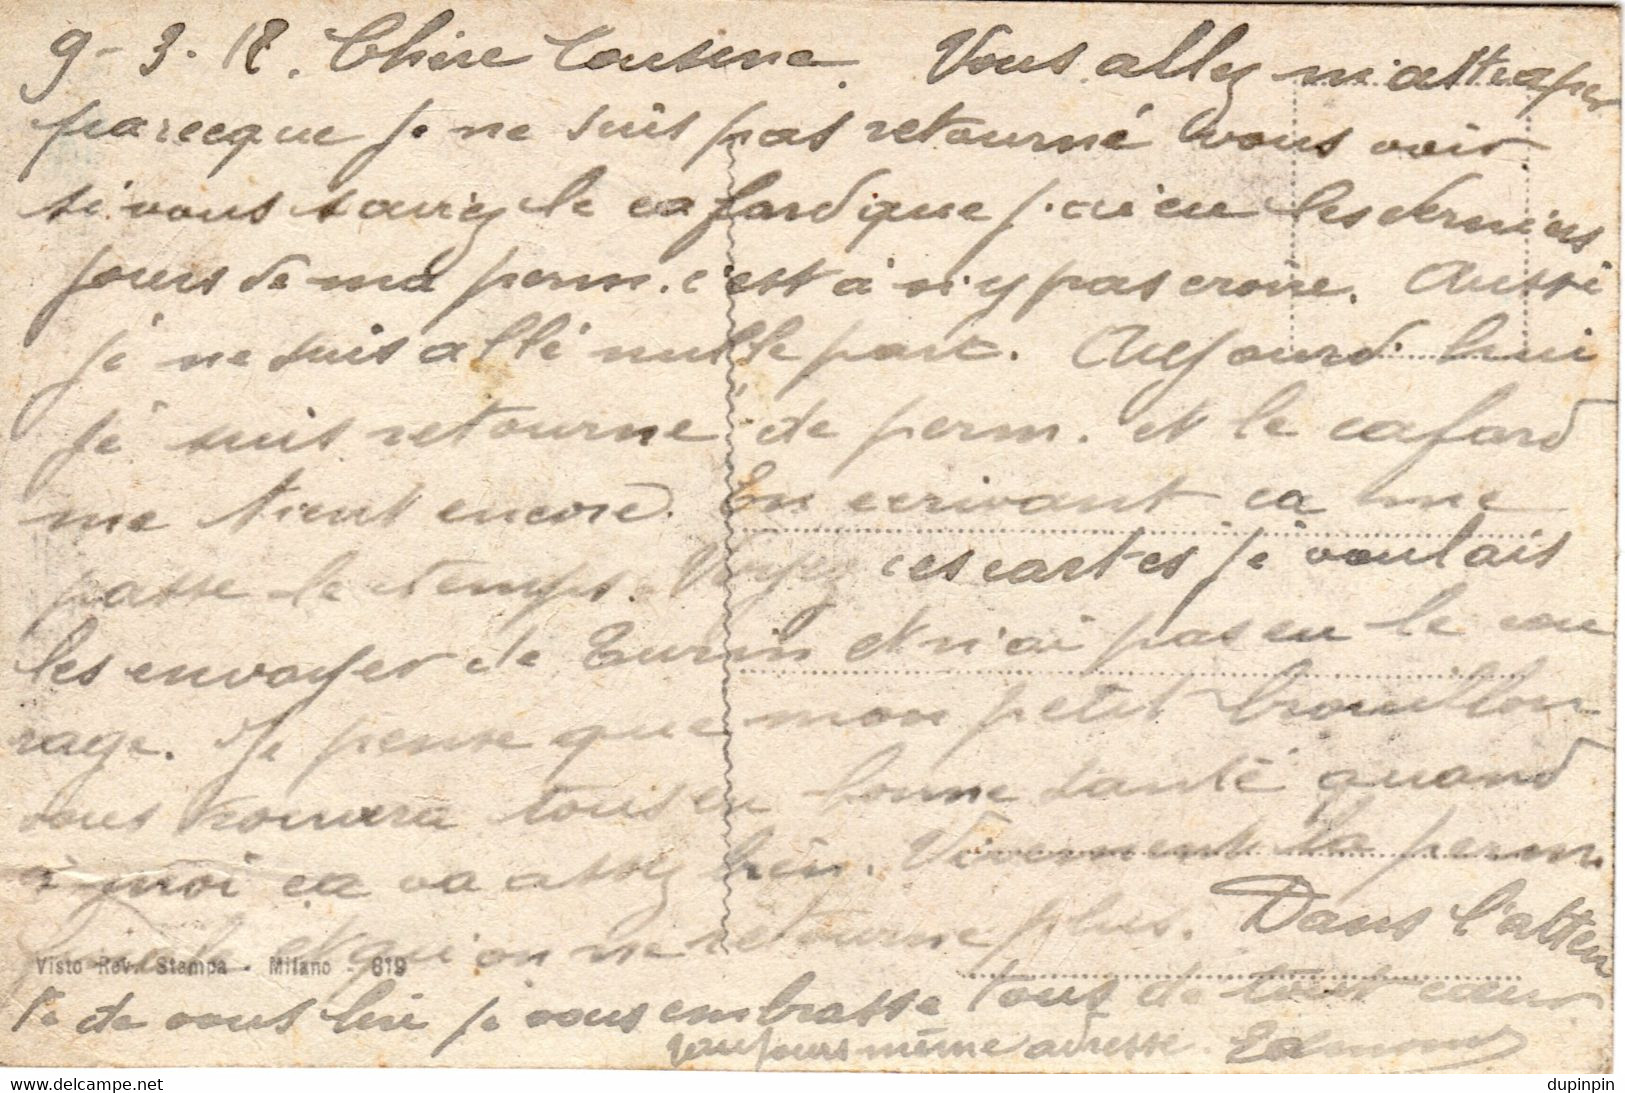 9-3-18. Chère Cousine. Vous allez m'attraper
parceque je ne suis pas retourné vous voir
si vous saviez le cafard que j'ai eu les derniers
jours de ma perm. c'est à n'y pas croire. Aussi
je ne suis allé nulle part. Aujourd'hui
je suis retourné de perm. et le cafard
me tient encore. En ecrivant ca me
passe le temps. Voyez ces cartes je voulais
les envoyer de Turin et n'ai pas eu le cou
rage. Je pense que mon petit brouillon
vous trouvera tous en bonne santé quand
à moi ca va assez bien. Vivement la perm.
et qu'on ne retourne plus. Dans l'atten
te de vous lire je vous embrasse tous de tout cœur.
toujours même adresse. Edmond
Visto Rev. Stampa - Milano - 819
dupinpin
www.delcampe.net